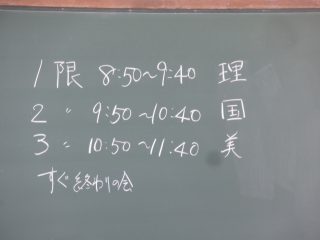 1限 8:50~9:40 理
2 〃 9:50~10:40 国
3 〃 10:50~11:40 美
すぐ終わりの会